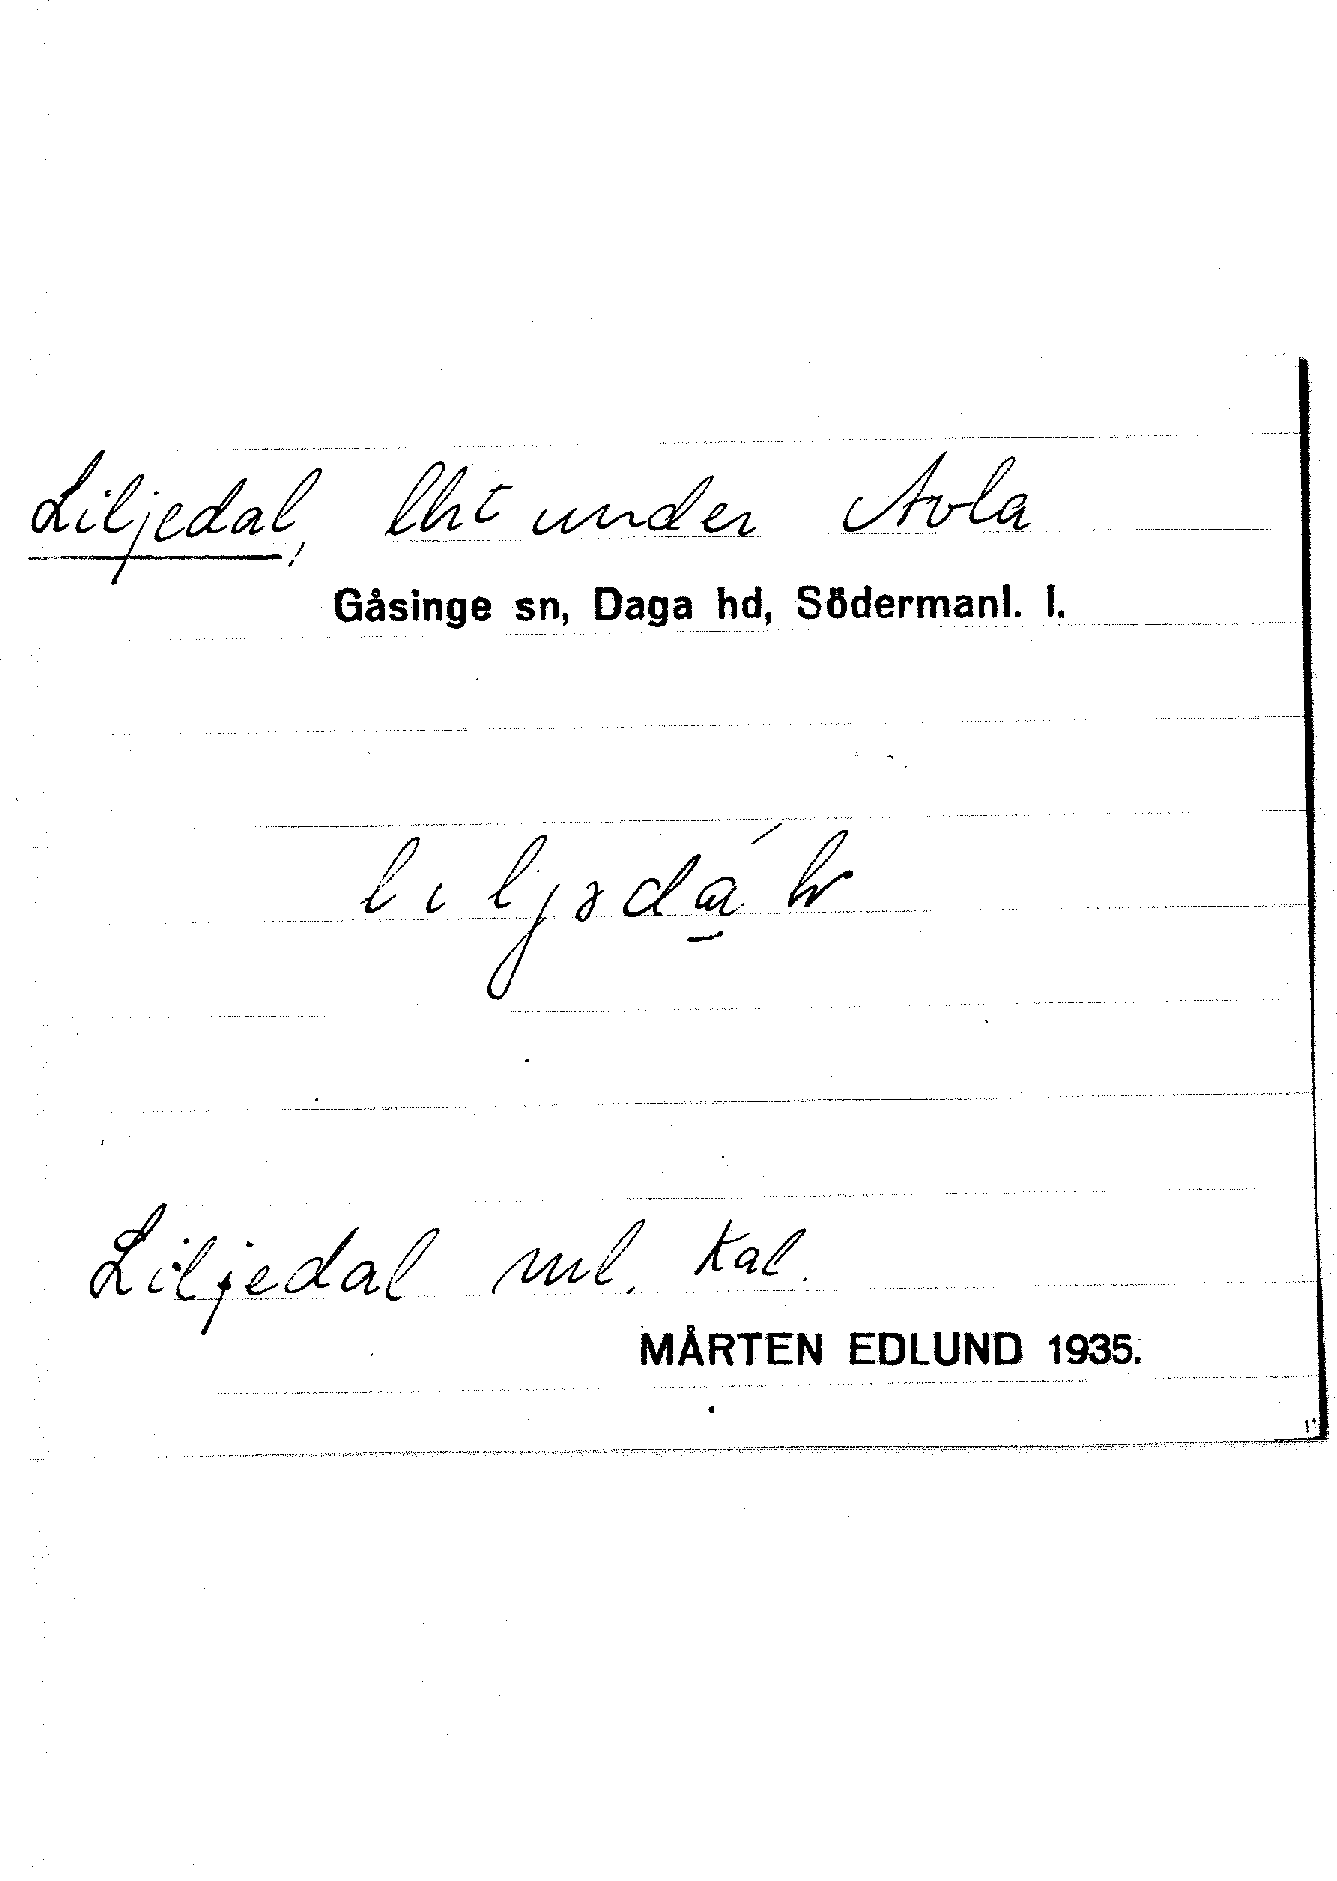 Liljedal, lht under Avla
Gåsinge sn, Daga hd, Södermanl. l.
Liljedal ml. Kal.
MÅRTEN EDLUND 1935.